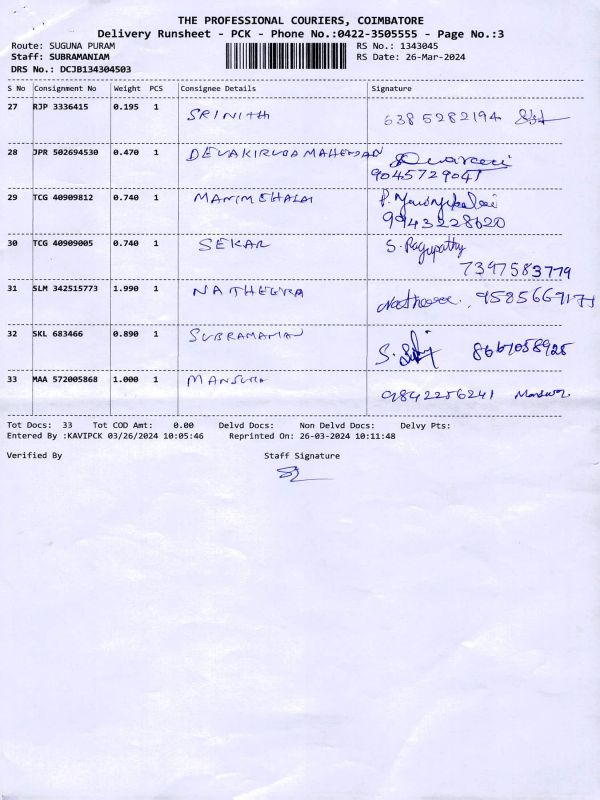 THE PROFESSIONAL COURIERS, COIMBATORE
Delivery Runsheet - PCK - Phone No.:0422-3505555 - Page No.:3
Route: SUGUNA PURAM RS No.: 1343045
Staff: SUBRAMANIAM RS Date: 26-Mar-2024
DRS No.: DCJB134304503
S No Consignment No Weight PCS Consignee Details Signature
27 RJP 3336415 0.195 1 SRINITH 6385282194
28 JPR 502694530 0.470 1 DEVAKIRUBA MAHENDAN
9045729041
29 TCG 40909812 0.740 1 MANIMEHALAI
9943228620
30 TCG 40909005 0.740 1 SEKAR S. Ragupathy
7397583779
31 SLM 342515773 1.990 1 NATHEERA
32 SKL 683466 0.890 1 SUBRAMANIAN 8667058925
33 MAA 572005868 1.000 1 MANSURA 9842256241
Tot Docs: 33 Tot COD Amt: 0.00 Delvd Docs: Non Delvd Docs: Delvy Pts:
Entered By :KAVIPCK 03/26/2024 10:05:46 Reprinted On: 26-03-2024 10:11:48
Verified By Staff Signature